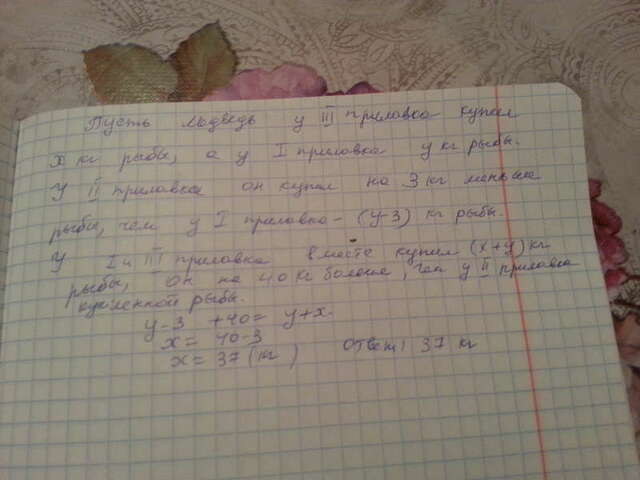 Пусть медведь у III прилавка купил
x кг рыбы, а у I прилавка y кг рыбы.
У II прилавка он купил на 3 кг меньше
рыбы, чем у I прилавка - (y-3) кг рыбы.
У I и III прилавка вместе купил (x+y) кг
рыбы, он на 40 кг больше, чем у II прилавка
купленной рыбы.
y-3 +40= y+x.
x= 40-3
x= 37 (кг) Ответ: 37 кг